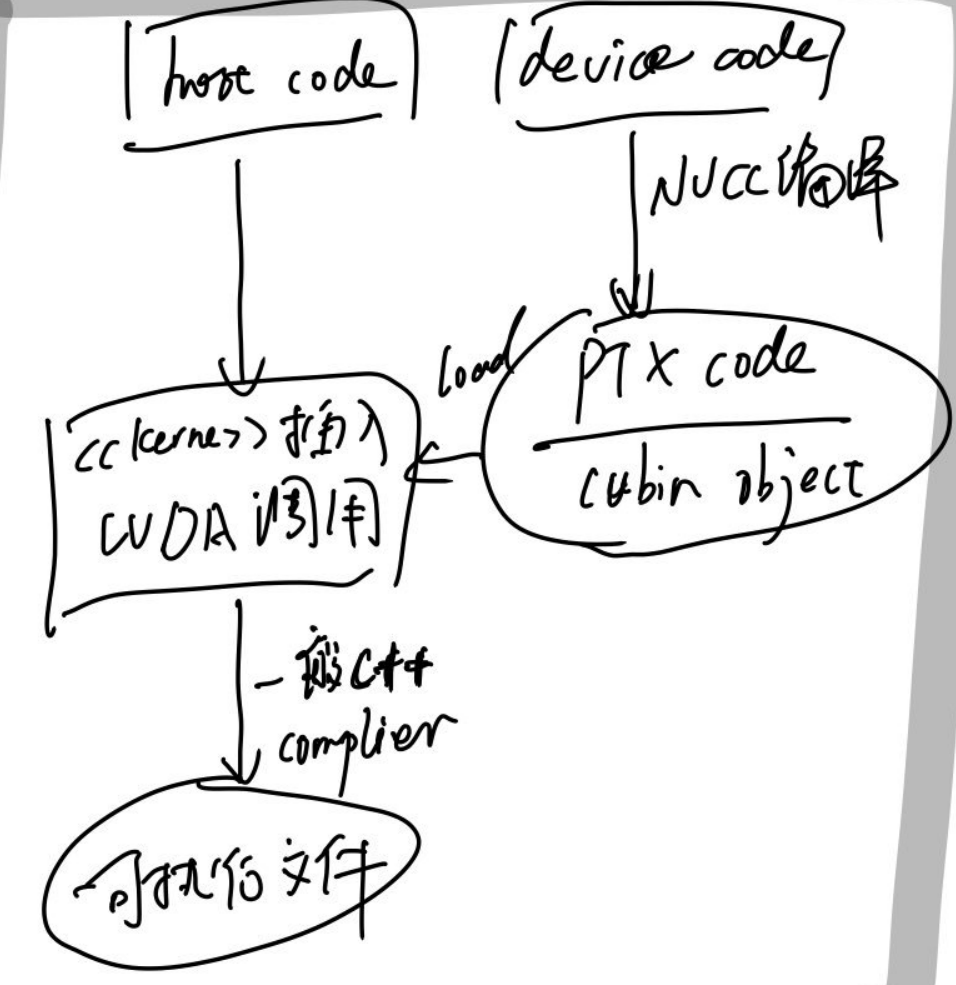 host code
device code
NVCC编译
load
PTX code
cubin object
<<kerne>>插入
CUDA调用
一般C++
complier
可执行文件